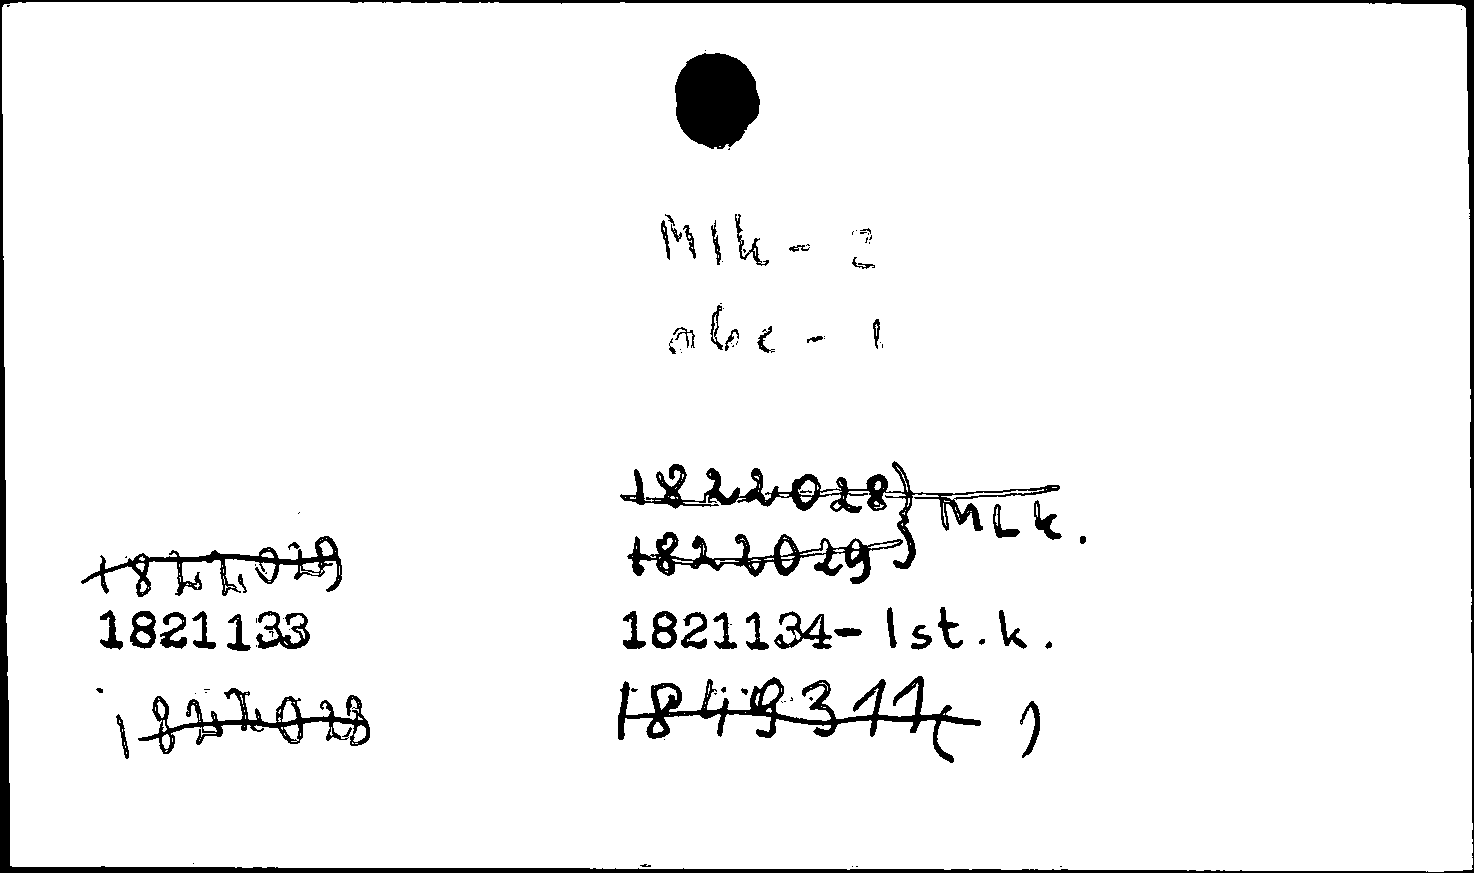 Mlk - 2
abc - 1
1822028 } MLk.
1822029
1822029
1821133 1821134- 1st.k.
1822028 1849311( )